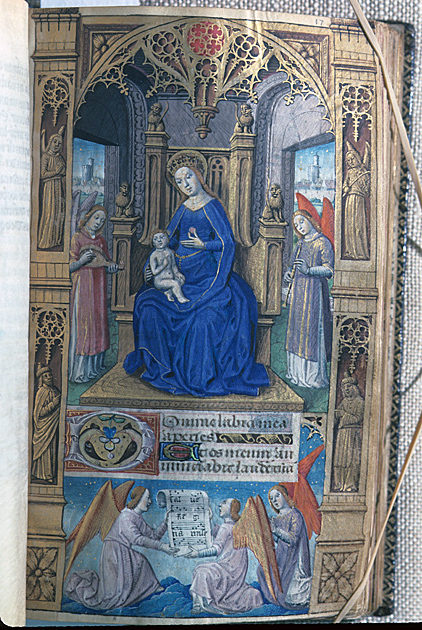 17
Domine labia mea
aperies
Et os meum an
nunciabit laudem
Sal ue
Re gi
na mise